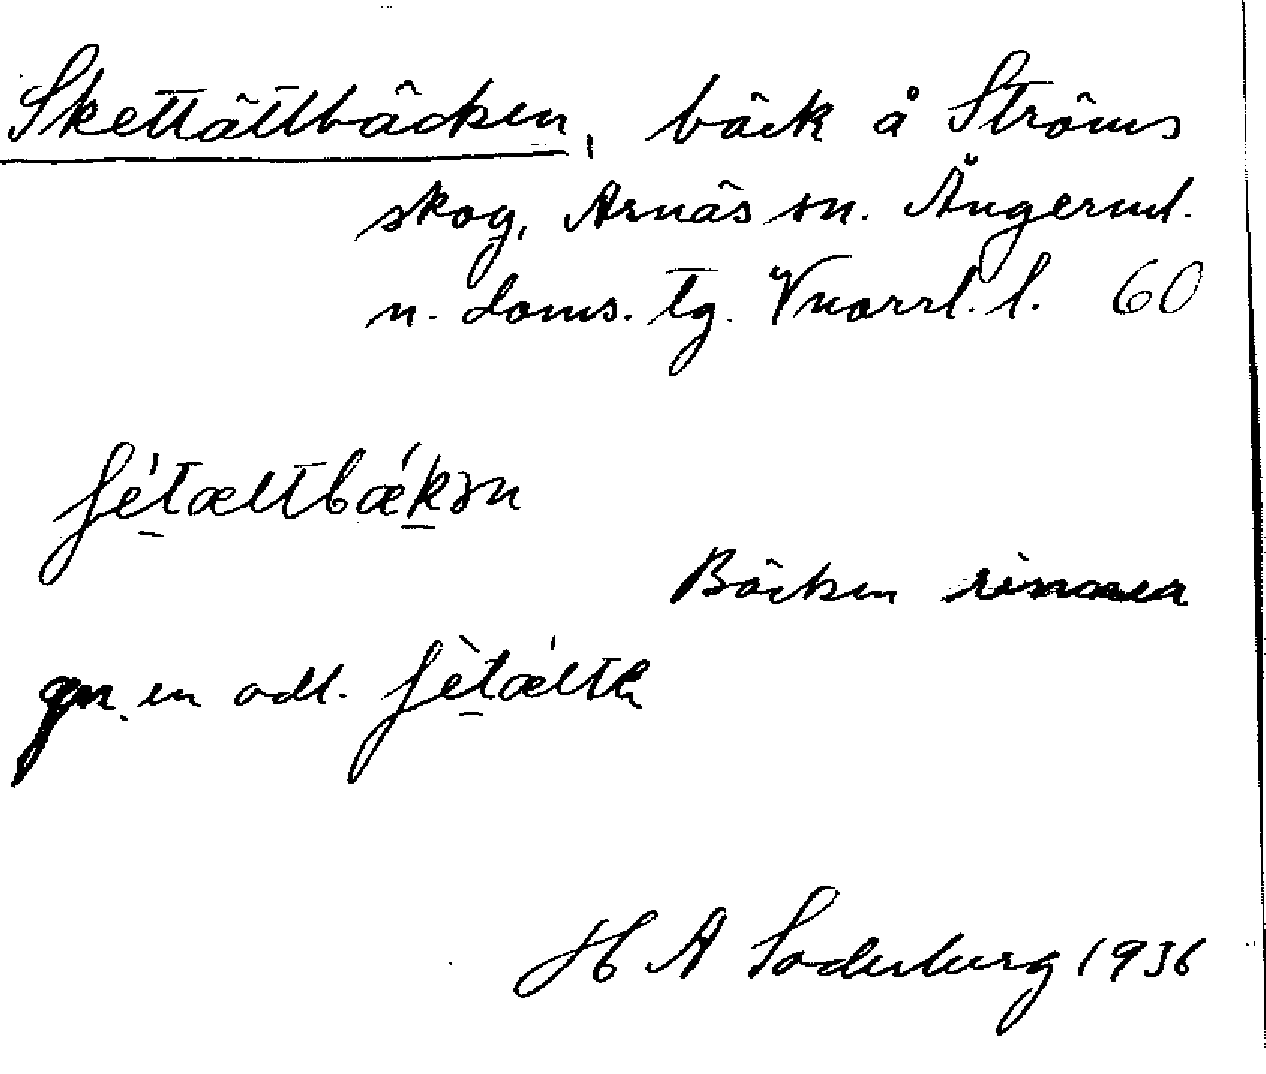 Skettättbäcken, bäck å Ströms
skog, Arnäs sn. Ångerml.
n. doms. tg. Vnorrl. l. 60
ʃétæltbǽkən
Bäcken rinner
gm. en odl. ʃètǽltn
H A Söderberg 1936